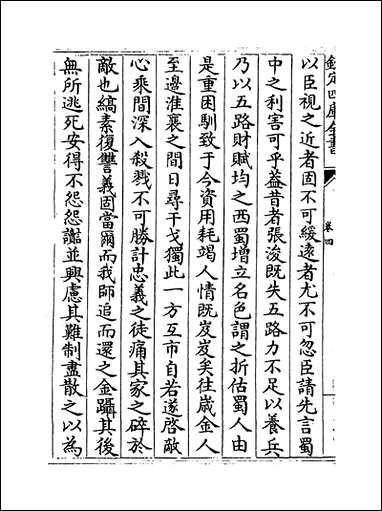 欽定四庫全書
卷四
以臣視之近者固不可緩遠者尤不可忽臣請先言蜀
中之利害可乎葢昔者張浚既失五路力不足以養兵
乃以五路財賦均之西蜀增立名色謂之折估蜀人由
是重困馴致于今資用耗竭人情既岌岌矣往嵗金人
至邊淮襄之間日尋干戈獨此一方互市自若遂啓敵
心乘間深入殺戮不可勝計忠義之徒痛其家之碎於
敵也縞素復讐義固當爾而我師追而還之金躡其後
無所逃死安得不怨怨讟並興慮其難制盡散之以為